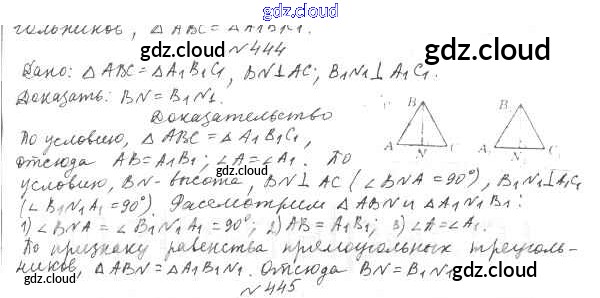 gdz.cloud
гольников, △ABC = △A1B1C1.
gdz.cloud
№444
gdz.cloud
Дано: △ABC = △A1B1C1, BN⊥AC; B1N1⊥A1C1.
Доказать: BN = B1N1.
Доказательство
По условию, △ABC = △A1B1C1,
отсюда AB = A1B1; ∠A = ∠A1. По
условию, BN - высота, BN⊥AC (∠BNA = 90°), B1N1⊥A1C1
(∠B1N1A1 = 90°). Рассмотрим △ABN и △A1N1B1:
1) ∠BNA = ∠B1N1A1 = 90°; 2) AB = A1B1; 3) ∠A = ∠A1.
По признаку равенства прямоугольных треуголь-
ников, △ABN = △A1B1N1. Отсюда BN = B1N1
№445
B
A N C
B
A. N C
gdz.cloud
gdz.cloud
gdz.cloud
gdz.cloud
gdz.cloud